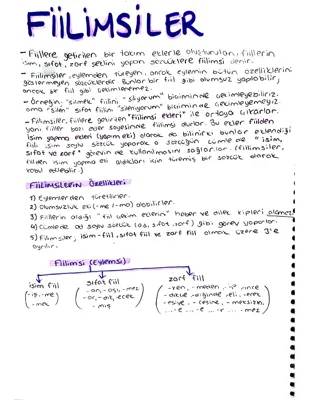 FİİLİMSİLER
- Fiillere getirilen bir takım eklerle oluşturulan, fiillerin
isim, sıfat, zarf şeklini yapan sözcüklere fiilimsi denir.
- Fiilimsiler, eylemden türeyen, ancak eylemin bütün özelliklerini
göstermeyen sözcüklerdir. Bunlar bir fiil gibi olumsuz yapılabilir,
ancak bir fiil gibi çekimlenemez.
- Örneğin: "silmek" fiilini "siliyorum" biçiminde çekimleyebiliriz.
ama "silen" sıfat fiilini "sileniyorum" biçiminde çekimleyemeyiz
- Fiilimsiler, fiillere getirilen "fiilimsi ekleri" ile ortaya çıkarlar.
yani fiiller bazı ekler sayesinde fiilimsi olurlar. Bu ekler fiilden
isim yapma ekleri (yapım eki) olarak da bilinir. bunlar eklendiği
fiili isim soylu sözcük yaparak o sözcüğün cümlede "isim,
sıfat ve zarf" görevinde kullanılmasını sağlarlar. fiilimsiler,
fiilden isim yapma eki aldıkları için türemiş bir sözcük olarak
kabul edilir.)
Fiilimsilerin Özellikleri
1) Eylemlerden türetilirler.
2) Olumsuzluk eki (-me / -ma) alabilirler.
3) Fiillerin aldığı "fiil çekim eklerini" haber ve dilek kipleri alamaz!
4) Cümlede ad soylu sözcük (ad, sıfat, zarf) gibi görev yaparlar.
5) Fiilimsiler, isim-fiil, sıfat fiil ve zarf fiil olmak üzere 3'e
ayrılır.
Fiilimsi (Eylemsi)
isim fiil sıfat fiil zarf fiil
-mek -an, -ası, -mez -ken, -meden, -ince
-ar, -dik, -ecek -dikçe -diğinde
-miş -esiye, -cesine, -meksizin